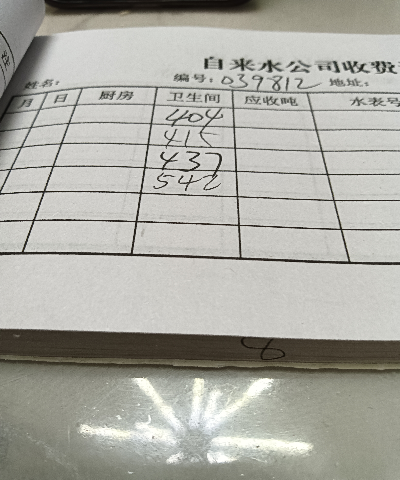 自来水公司收费
姓名: 编号: 039812 地址:
月 日 厨房 卫生间 应收吨 水表号
404
415
437
542
8